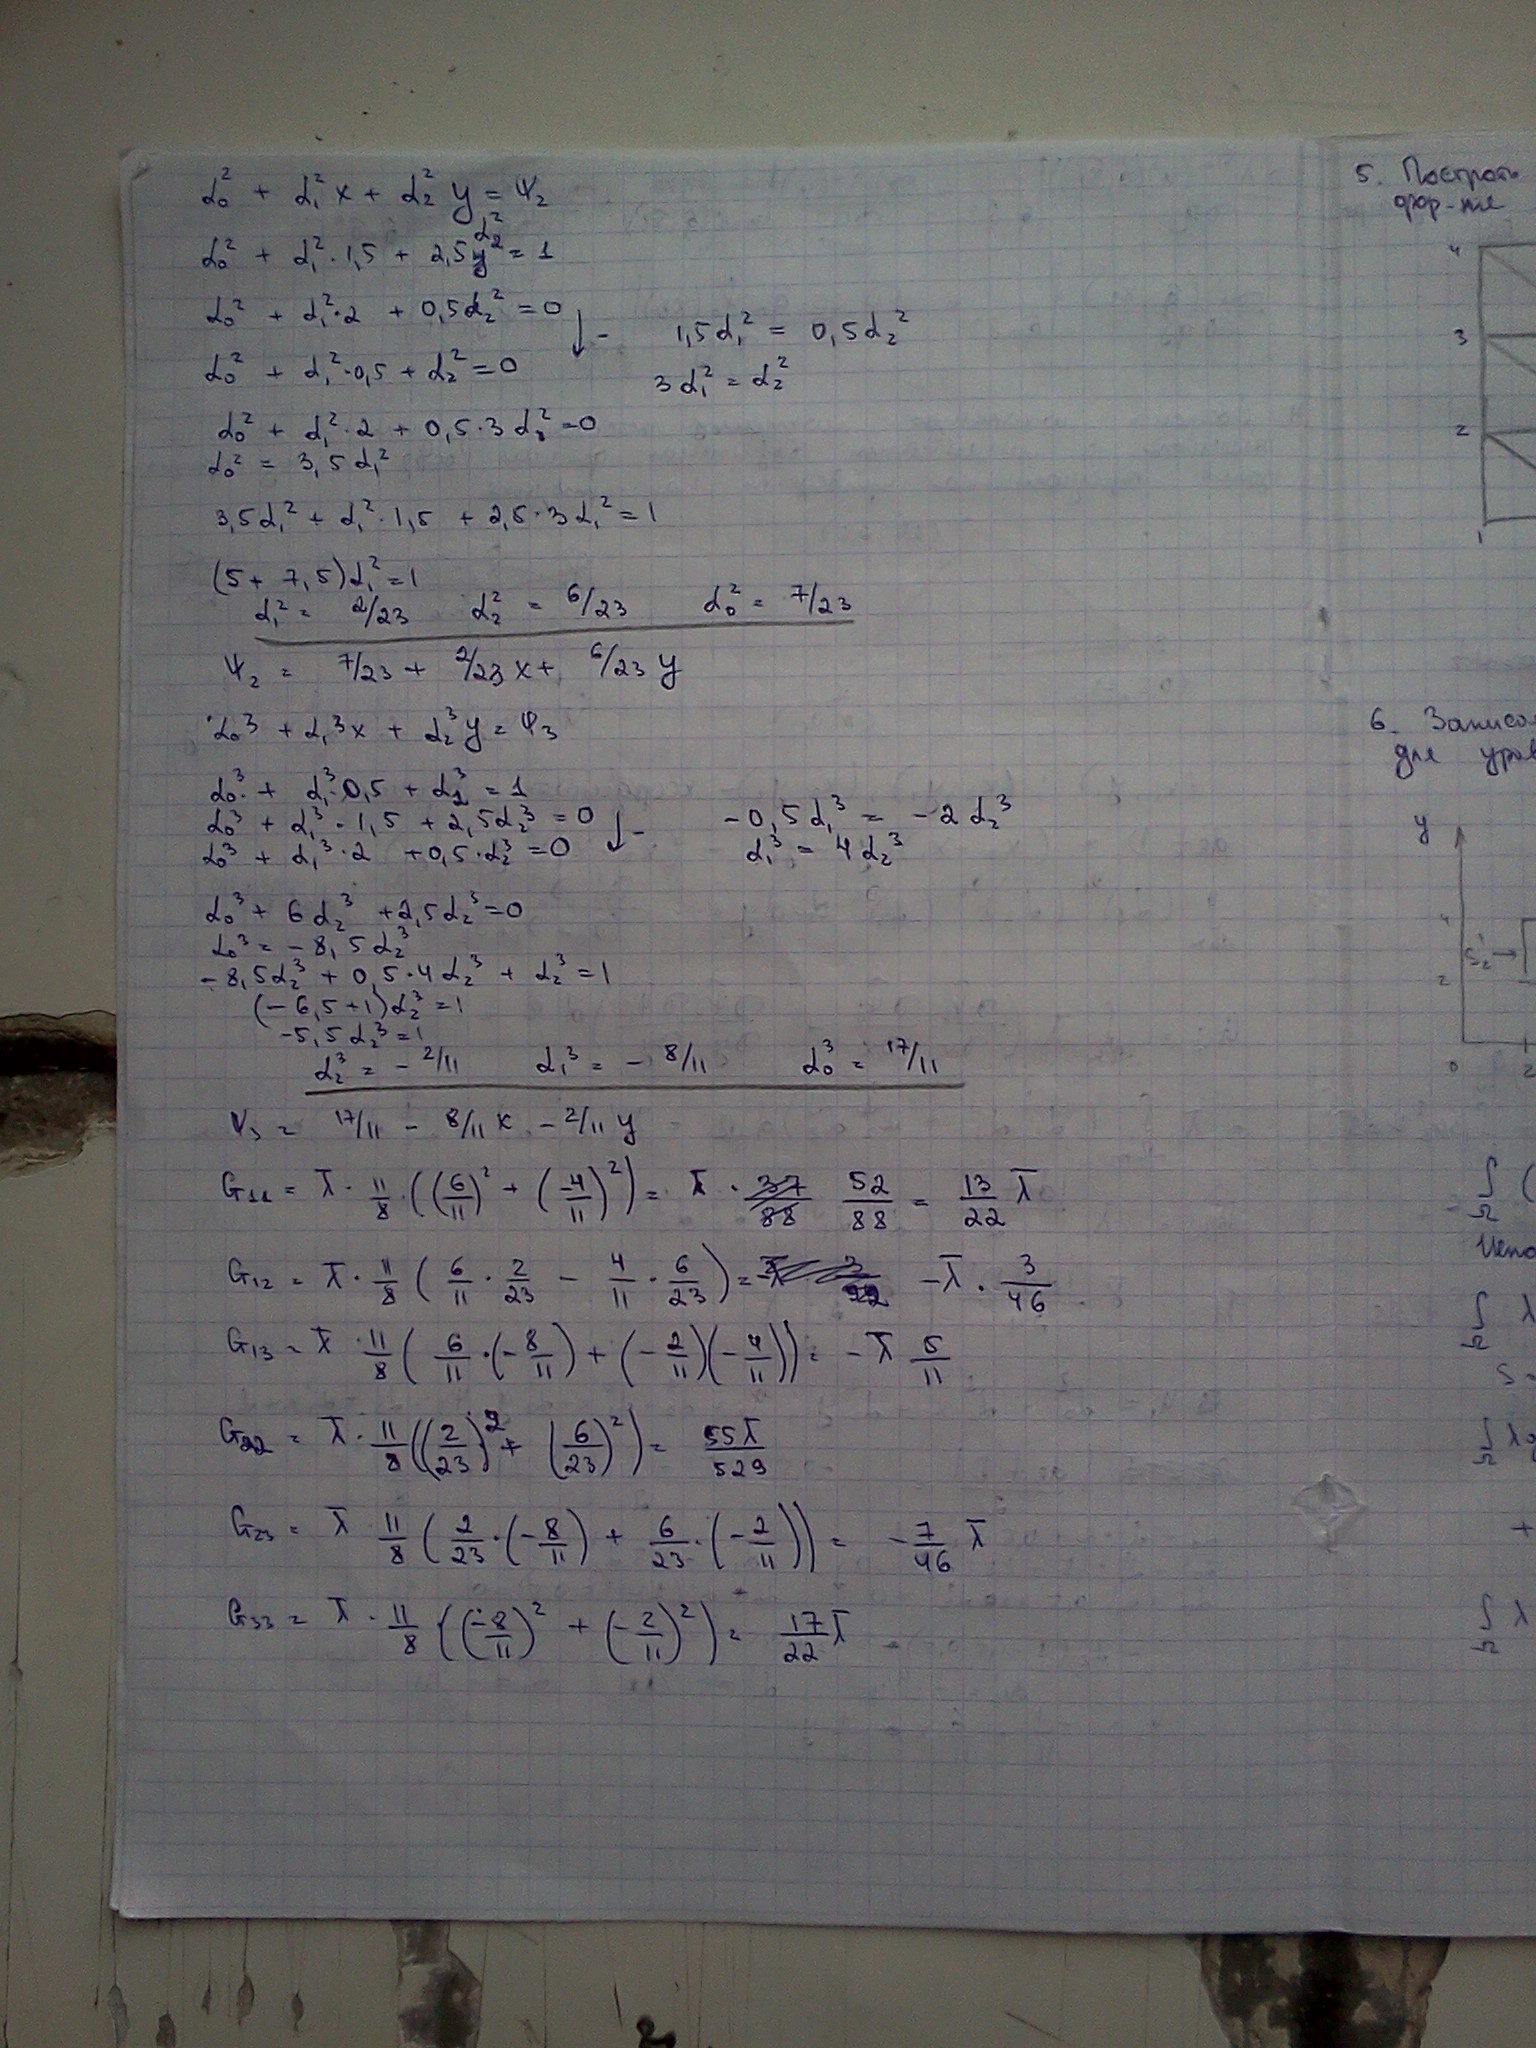 α₀² + α₁² x + α₂² y = ψ₂
α₀² + α₁² · 1,5 + 2,5 α₂² = 1
α₀² + α₁² · 2 + 0,5α₂² = 0 ↓ −
1,5α₁² = 0,5α₂²
α₀² + α₁² · 0,5 + α₂² = 0
3α₁² = α₂²
α₀² + α₁² · 2 + 0,5 · 3α₁² = 0
α₀² = 3,5α₁²
3,5α₁² + α₁² · 1,5 + 2,5 · 3α₁² = 1
(5 + 7,5)α₁² = 1
α₁² = 2/23 α₂² = 6/23 α₀² = 7/23
ψ₂ = 7/23 + 2/23 x + 6/23 y
α₀³ + α₁³ x + α₂³ y = ψ₃
α₀³ + α₁³ · 0,5 + α₂³ = 1
α₀³ + α₁³ · 1,5 + 2,5α₂³ = 0 ↓ −
−0,5α₁³ = −2α₂³
α₀³ + α₁³ · 2 + 0,5 · α₂³ = 0
α₁³ = 4α₂³
α₀³ + 6α₂³ + 2,5α₂³ = 0
α₀³ = −8,5α₂³
−8,5α₂³ + 0,5 · 4α₂³ + α₂³ = 1
(−6,5 + 1)α₂³ = 1
−5,5α₂³ = 1
α₂³ = −2/11 α₁³ = −8/11 α₀³ = 17/11
ψ₃ = 17/11 − 8/11 x − 2/11 y
G₁₁ = λ̄ · 11/8 · ((6/11)² + (−4/11)²) = λ̄ · 52/88 = 13/22 λ̄
G₁₂ = λ̄ · 11/8 (6/11 · 2/23 − 4/11 · 6/23) = −λ̄ · 3/46
G₁₃ = λ̄ · 11/8 (6/11 · (−8/11) + (−2/11)(−4/11)) = −λ̄ 5/11
G₂₂ = λ̄ · 11/8 ((2/23)² + (6/23)²) = 55λ̄/529
G₂₃ = λ̄ · 11/8 (2/23 · (−8/11) + 6/23 · (−2/11)) = −7/46 λ̄
G₃₃ = λ̄ · 11/8 ((−8/11)² + (−2/11)²) = 17/22 λ̄
5. Построить
4
3
2
1
6.
для
y
4
2
0
2